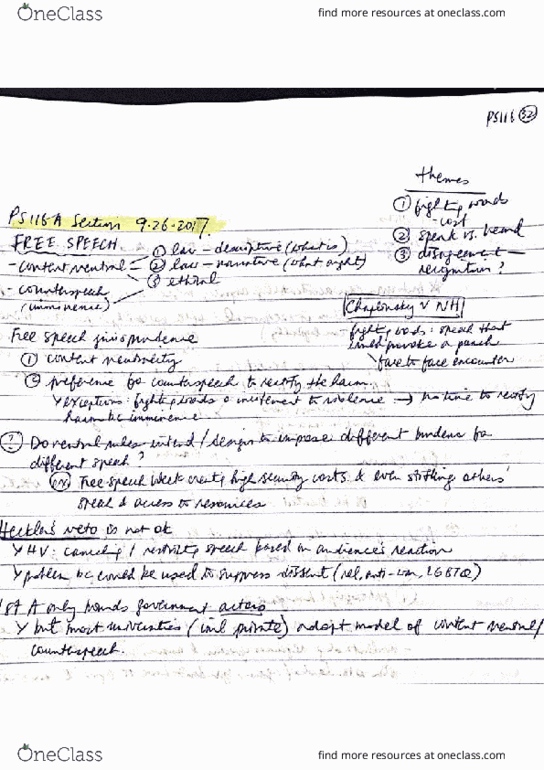 OneClass
find more resources at oneclass.com
PS116 32
themes
① fighting words
- cost
② speak vs. heard
③ disagreement —
recognition?
PS 116-A Section 9.26.2017
FREE SPEECH
① law - descriptive (what is)
- content neutral
② law - normative (what ought)
③ ethical
- counterspeech
(imminence)
Chaplinsky v NH
- fighting words: speech that
would provoke a punch
face to face encounter
Free speech jurisprudence
① content neutrality
② preference for counterspeech to rectify the harm.
exceptions: fighting words or incitement to violence → no time to rectify
harm bc imminence
? Do neutral rules intend / design to impose different burdens for
different speech?
ex Free speech week creates high security costs & even stifling others'
speech & access to resources
Heckler's veto is not ok
HV: canceling / restricting speech based on audience's reaction
problem bc could be used to suppress dissent (rel, anti-war, LGBTQ)
1st A only bounds government actors
but most universities (incl private) adopt model of content neutral/
counterspeech.
OneClass
find more resources at oneclass.com